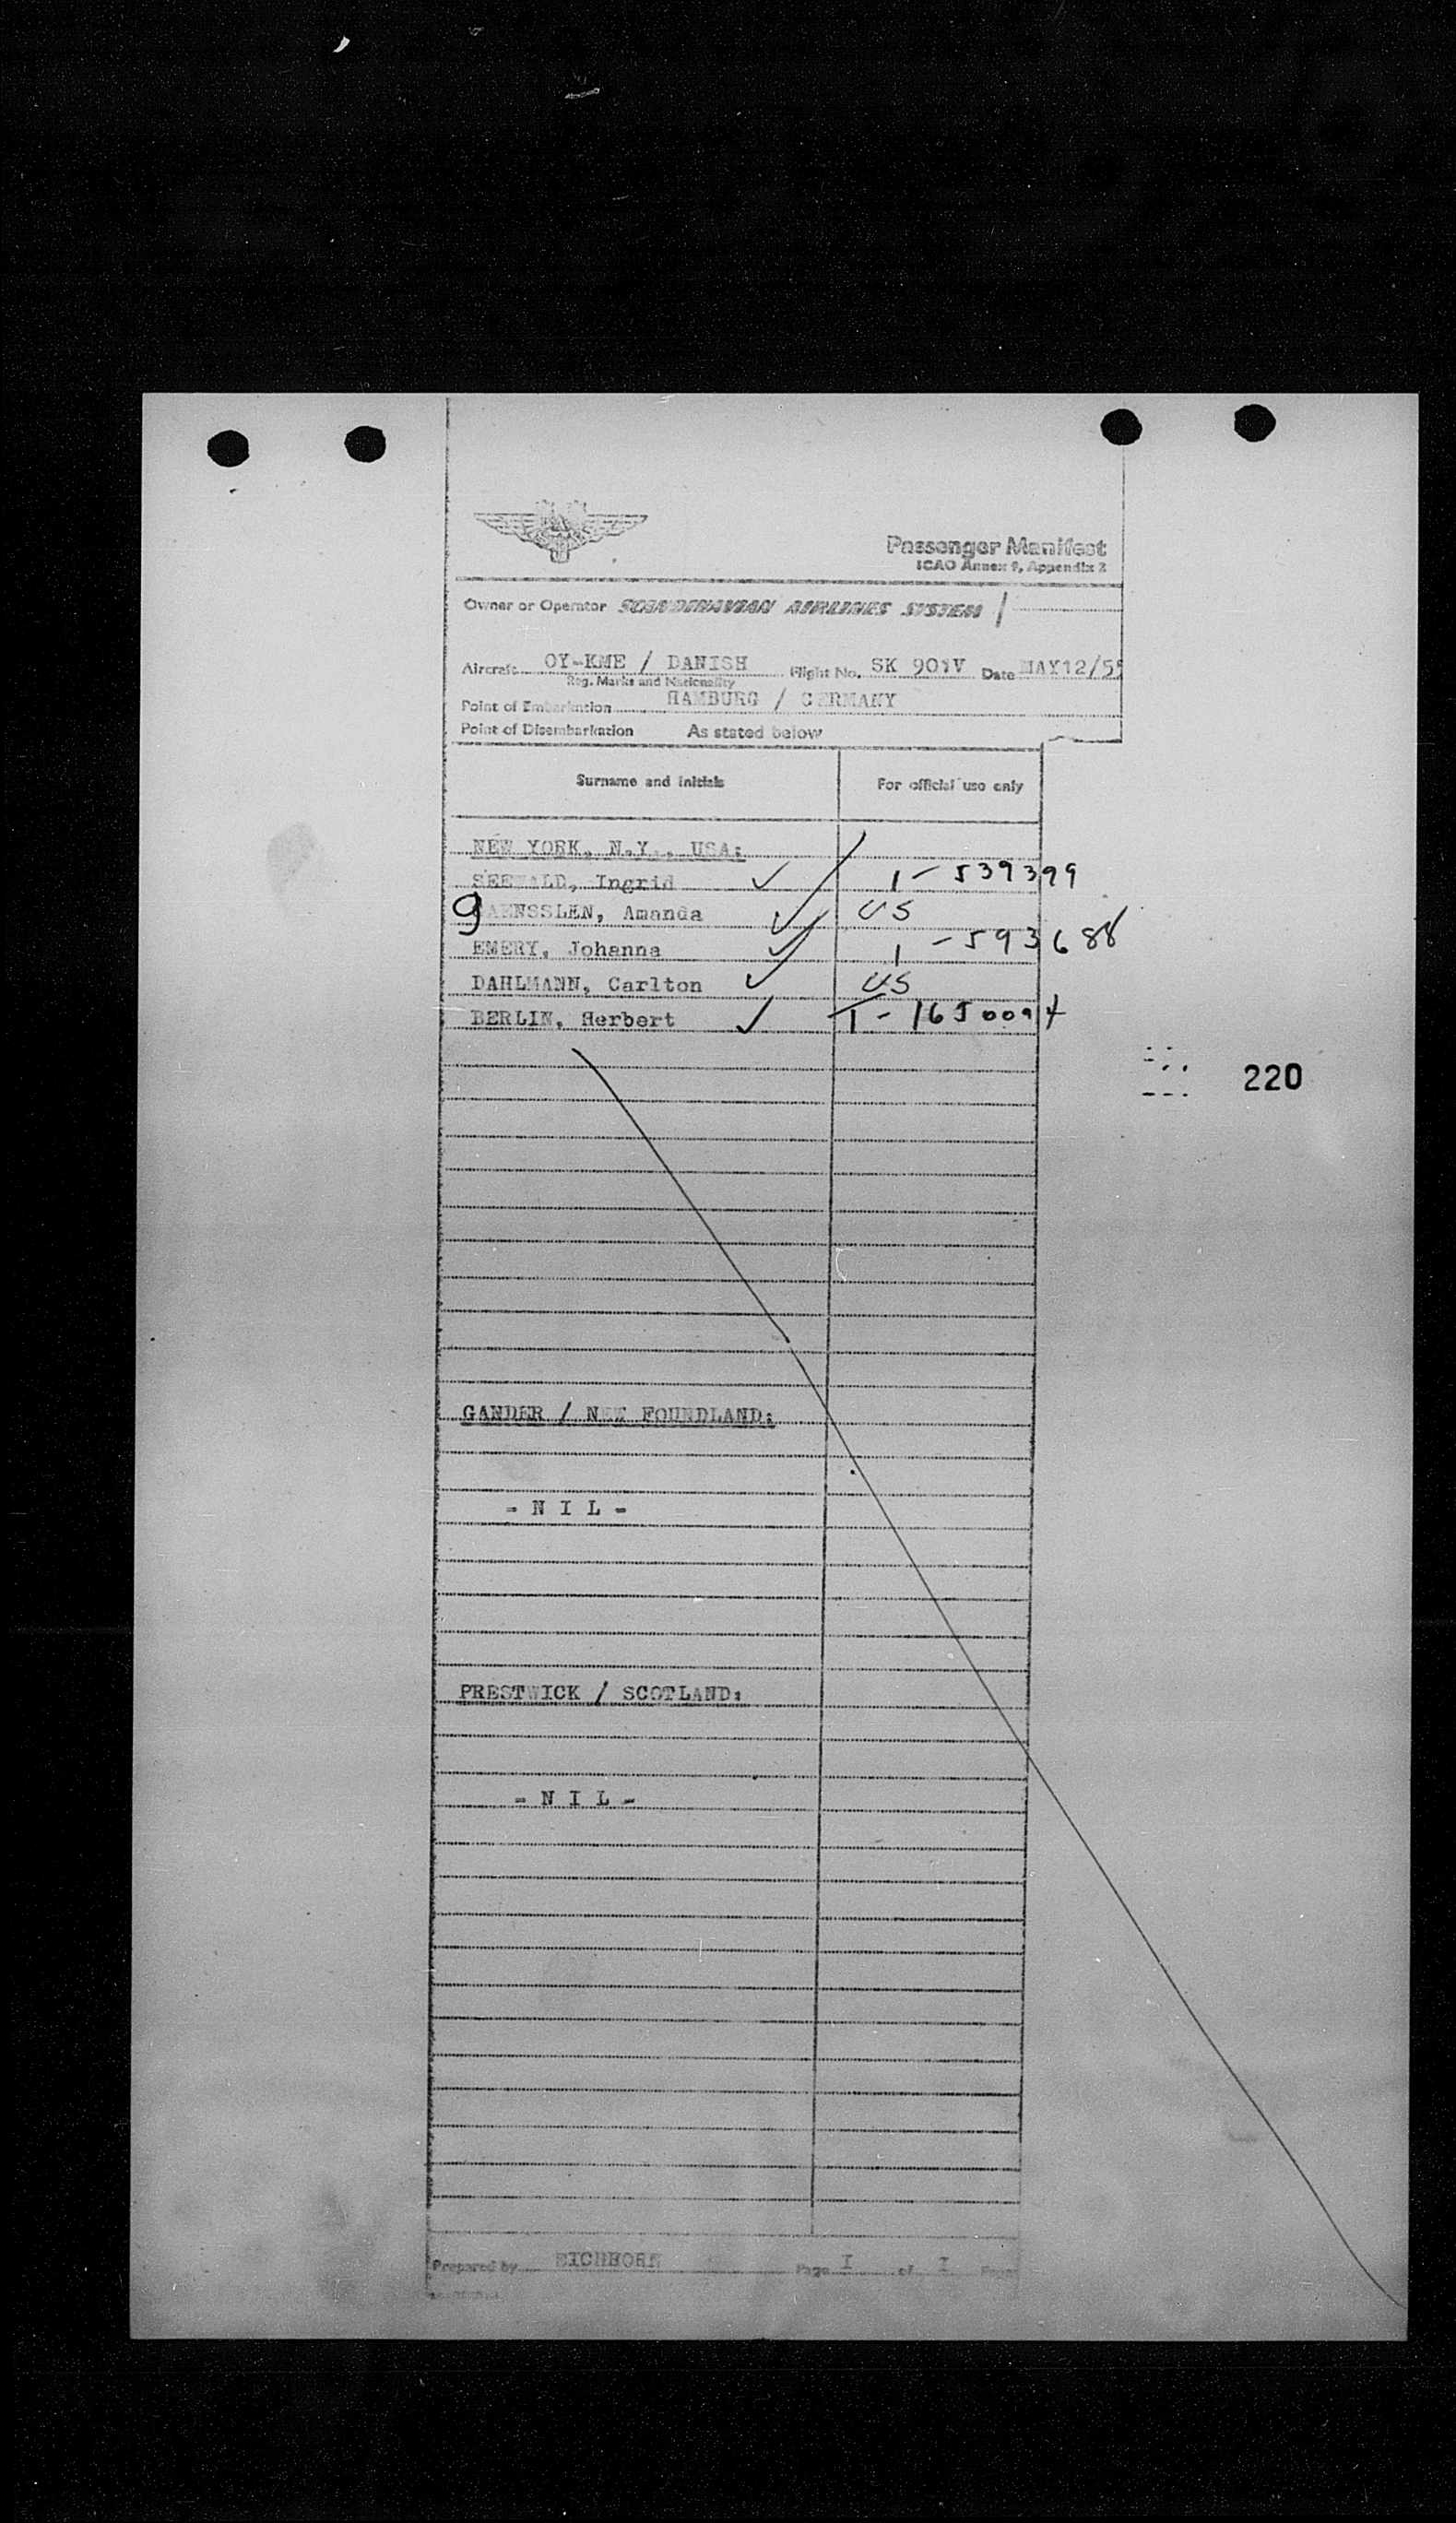 Passenger Manifest
ICAO Annex 9, Appendix 2
Owner or Operator SCANDINAVIAN AIRLINES SYSTEM
Aircraft OY-KME / DANISH Flight No. SK 901V Date MAY12/55
Reg. Marks and Nationality
Point of Embarkation HAMBURG / GERMANY
Point of Disembarkation As stated below
Surname and initials For official use only
NEW YORK, N.Y., USA:
SEEWALD, Ingrid ✓ 1-539399
GAENSSLEN, Amanda ✓ US
EMERY, Johanna ✓ 1-593688
DAHLMANN, Carlton ✓ US
BERLIN, Herbert ✓ 1-1650094
220
GANDER / NEW FOUNDLAND:
- N I L -
PRESTWICK / SCOTLAND:
- N I L -
Prepared by EICHHORN Page I of I Pages